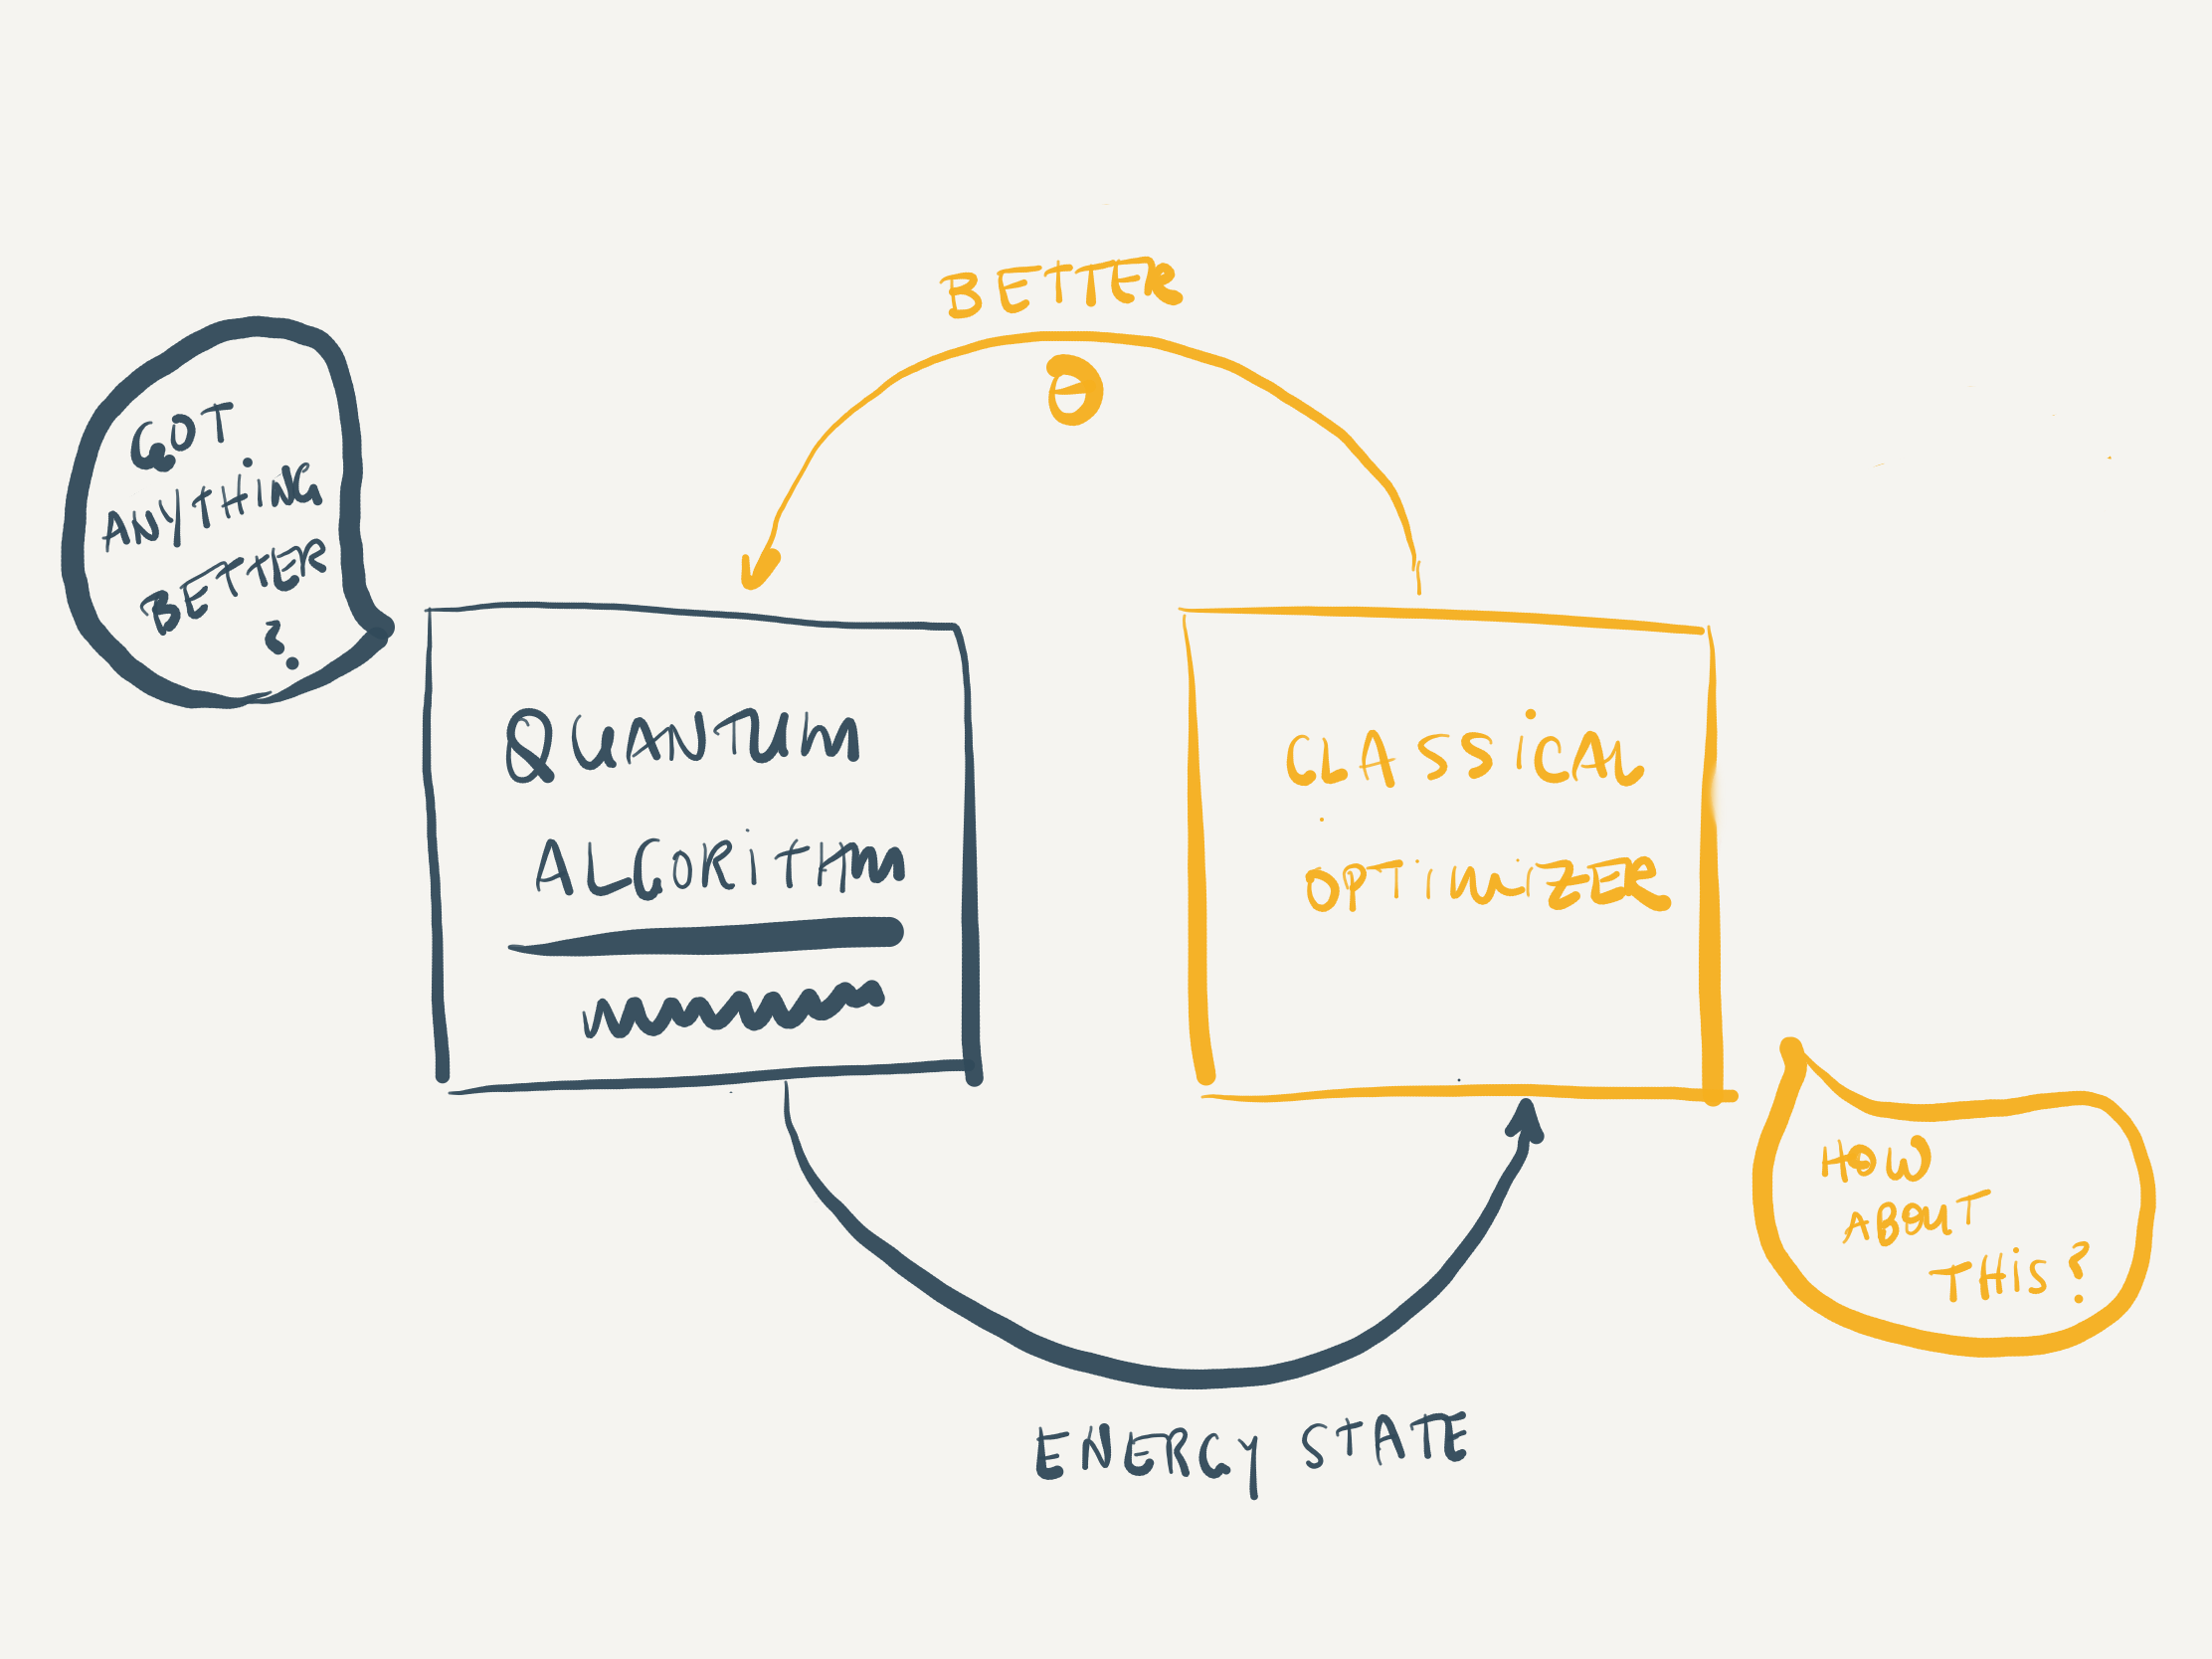 BETTER
θ
GOT
ANYTHING
BETTER
?
QUANTUM
ALGORITHM
CLASSICAL
OPTIMIZER
HOW
ABOUT
THIS?
ENERGY STATE